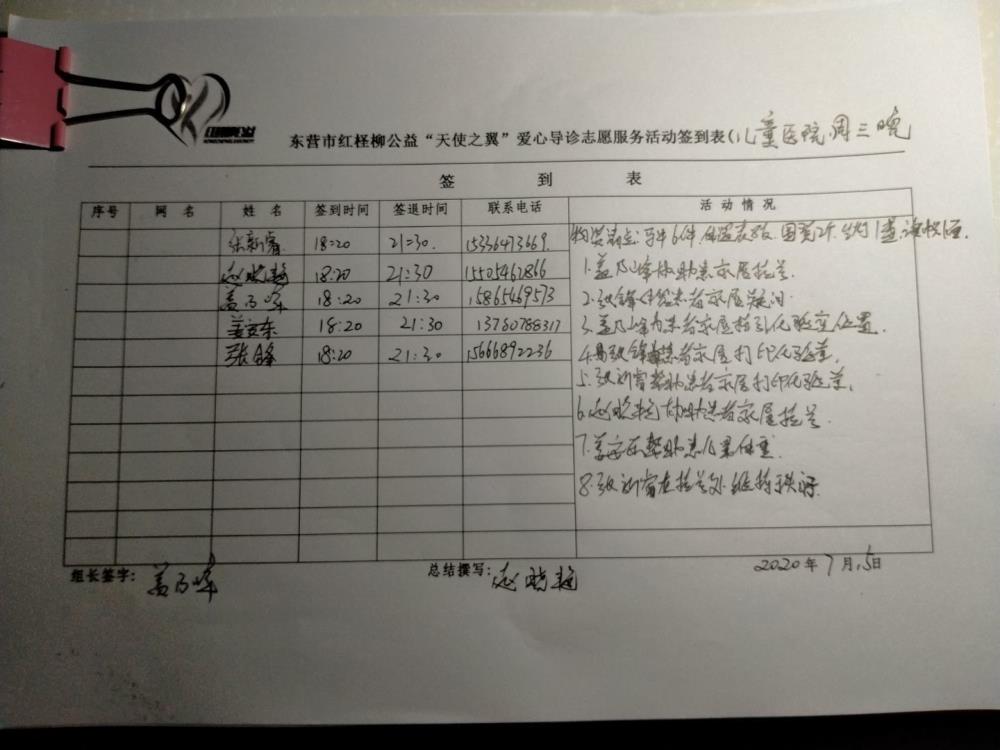 东营市红柽柳公益“天使之翼”爱心导诊志愿服务活动签到表(儿童医院,周三晚
签 到 表
序号 网 名 姓 名 签到时间 签退时间 联系电话 活 动 情 况
张新睿 18:20 21:30. 15336473669.
赵晓艳 18:20 21:30 15505462866
盖乃峰 18:20 21:30 15865469573
姜京东 18:20 21:30 13780788317
张锋 18:20 21:30 15666892236
1.盖乃峰协助患者家属挂号
2.张锋 患者家属疑问.
3.盖乃峰为患者家属指引化验室位置.
4. 张锋 患者家属打印化验单.
5.张新睿帮助患者家属打印化验单.
6.赵晓艳协助患者家属挂号
7. 帮助患儿 体重
8.张新睿在挂号处维持秩序.
组长签字: 盖乃峰 总结撰写: 赵晓艳 2020年7月15日